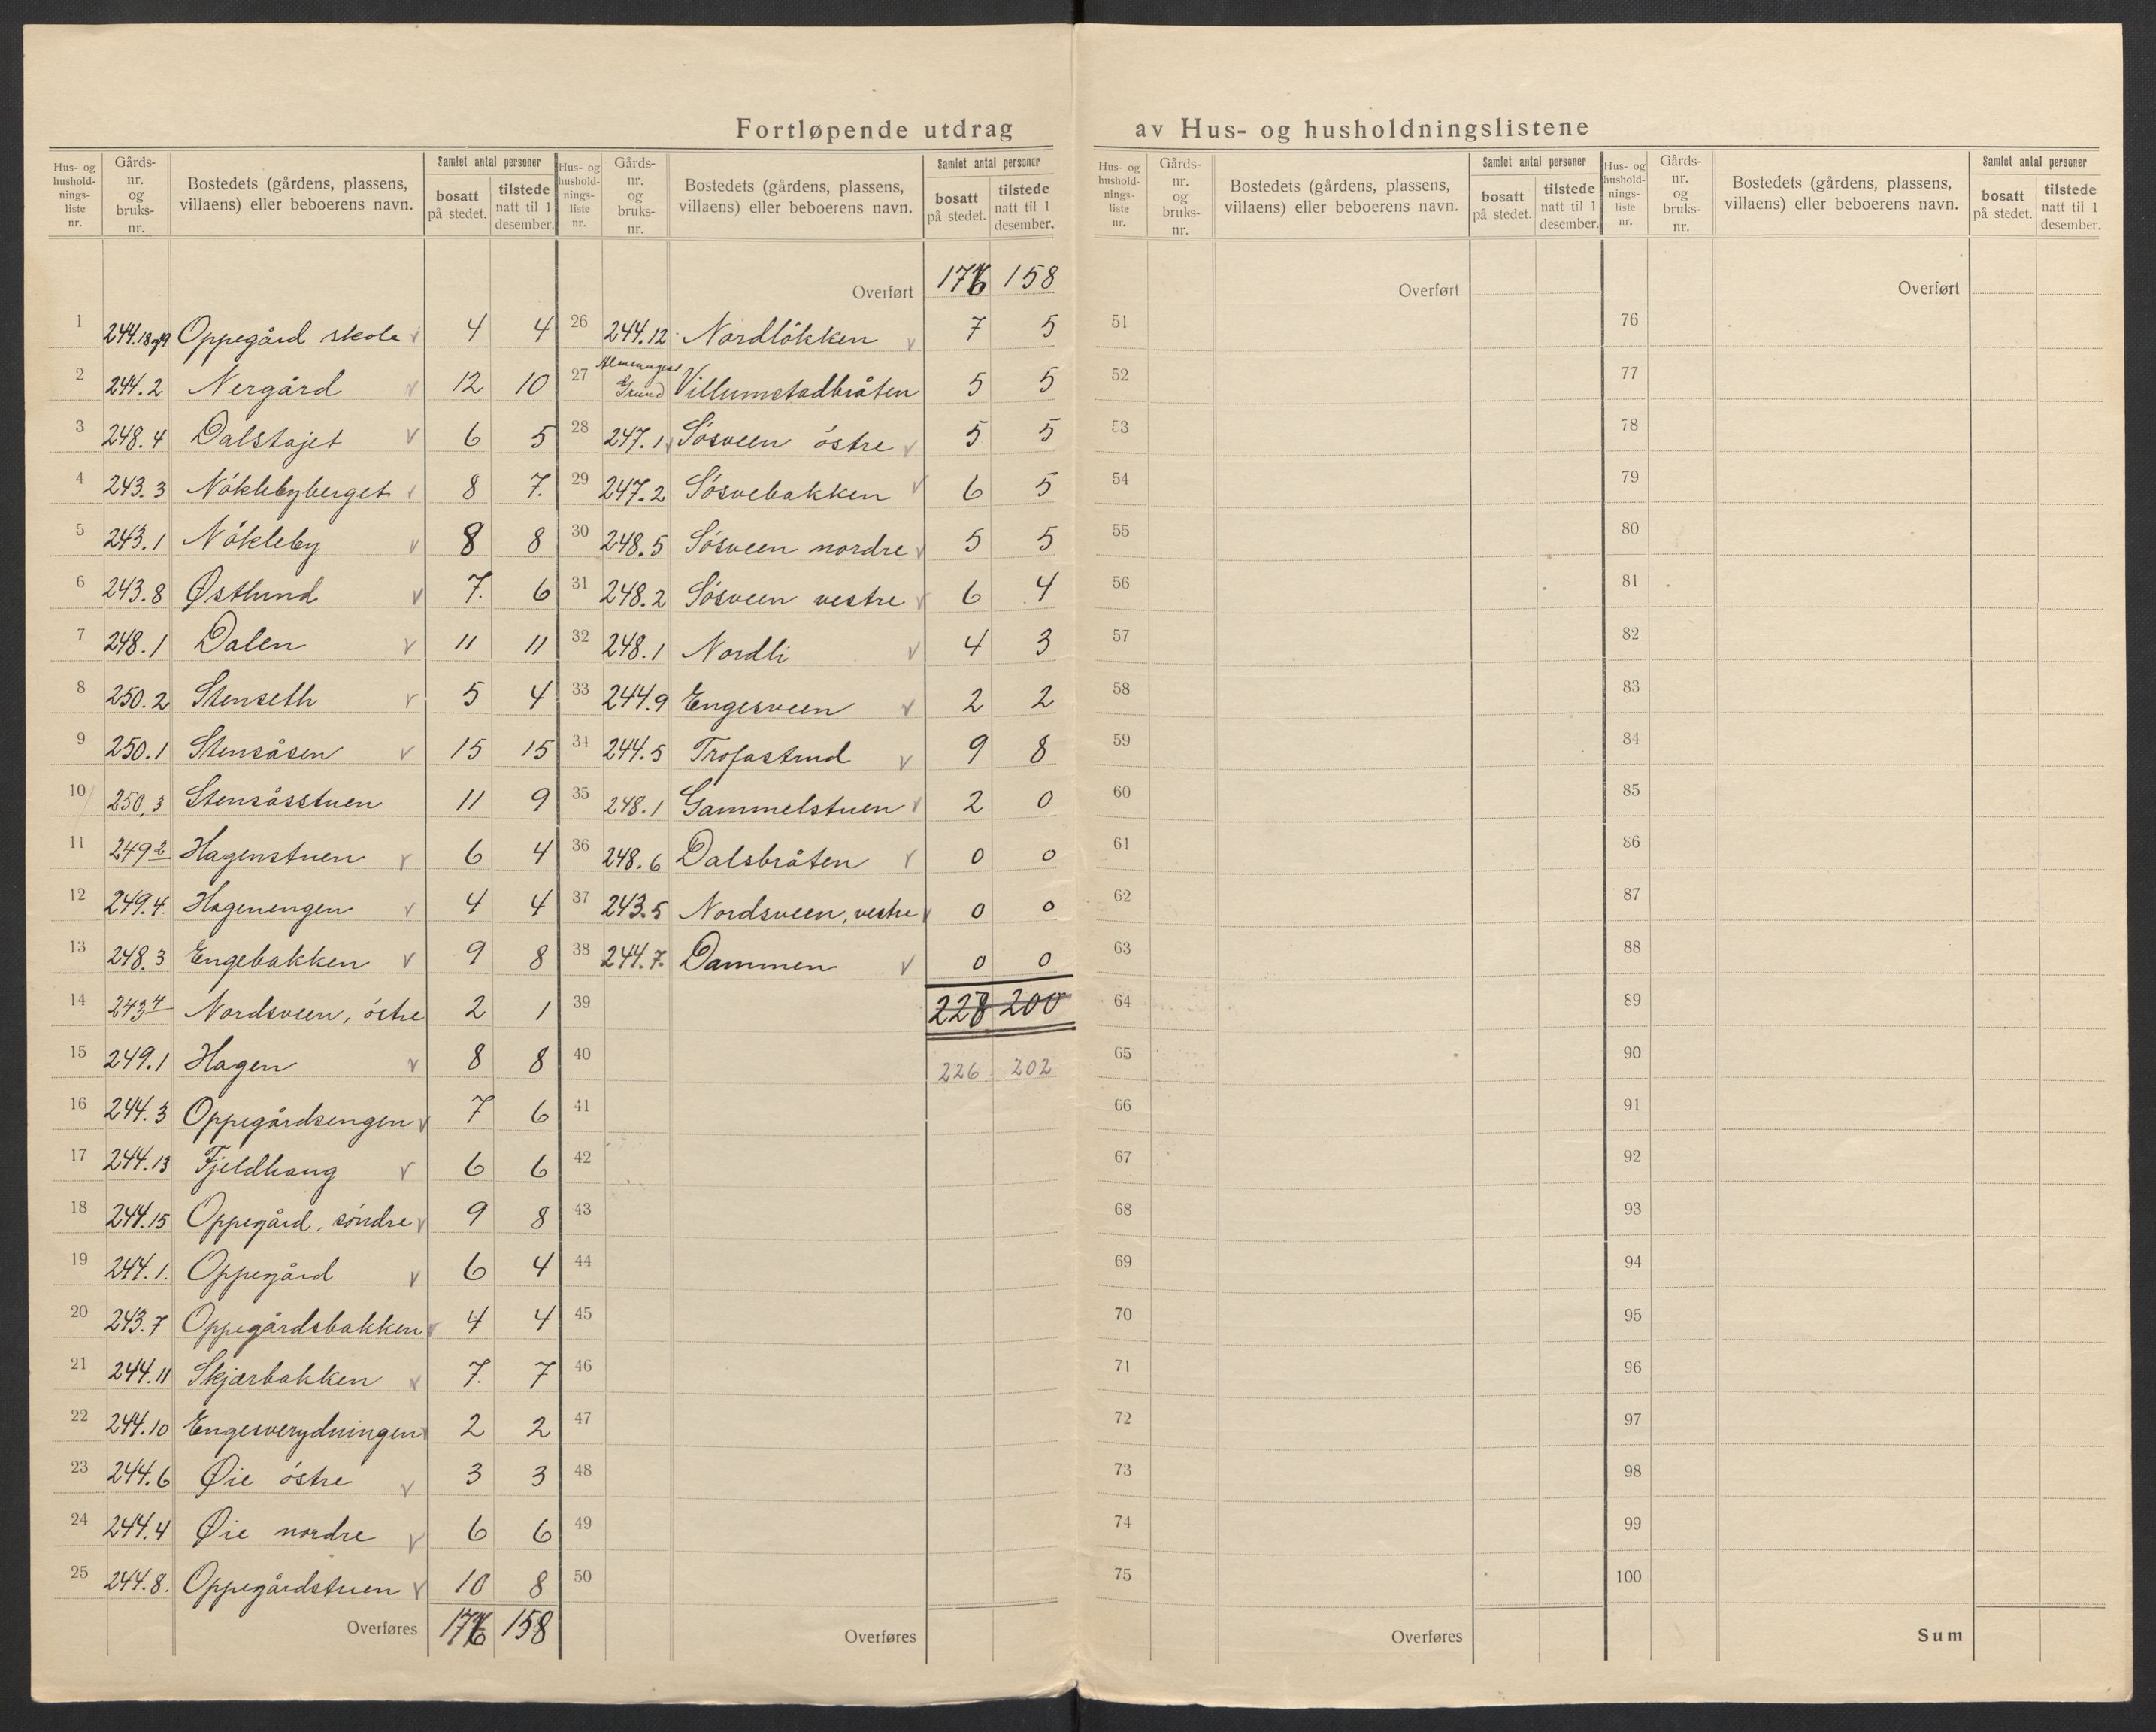 Fortløpende utdrag av Hus- og husholdningslistene
Hus- og hushold- nings- liste nr. | Gårds- nr. og bruks- nr. | Bostedets (gårdens, plassens, villaens) eller beboerens navn. | Samlet antal personer | bosatt på stedet. | tilstede natt til 1 desember.
1 244.18 og 19 Oppegård skole v 4 4
2 244.2 Nergård v 12 10
3 248.4 Dalstøjet v 6 5
4 243.3 Nöklebyberget v 8 7.
5 243.1 Nökleby v 8 8
6 243.8 Østlund v 7. 6
7 248.1 Dalen v 11 11
8 250.2 Stenseth v 5 4
9 250.1 Stensåsen v 15 15
10 250,3 Stensåsstuen 11 9
11 249.2 Hagenstuen v 6 4
12 249.4. Hagenengen v 4 4
13 248.3 Engebakken v 9 8
14 243.4 Nordsveen, östre 2 1
15 249.1 Hagen v 8 8
16 244.3 Oppegårdsengen v 7 6
17 244.13 Fjeldhaug v 6 6
18 244.15 Oppegård, söndre v 9 8
19 244.1. Oppegård v 6 4
20 243.7 Oppegårdsbakken v 4 4
21 244.11 Skjærbakken v 7. 7
22 244.10 Engesverydningen v 2 2
23 244.6 Øie östre v 3 3
24 244.4 Øie nordre v 6 6
25 244.8. Oppegårdstuen v 10 8
Overføres 176 158
Hus- og hushold- nings- liste nr. | Gårds- nr. og bruks- nr. | Bostedets (gårdens, plassens, villaens) eller beboerens navn. | Samlet antal personer | bosatt på stedet. | tilstede natt til 1 desember.
Overført 176 158
26 244.12 Nordlökken v 7 5
27 Almenings Grund Villumstadbråten 5 5
28 247.1 Sösveen östre v 5 5
29 247.2 Sösvebakken v 6 5
30 248.5 Sösveen nordre v 5 5
31 248.2 Sösveen vestre v 6 4
32 248.1 Nordli v 4 3
33 244.9 Engesveen v 2 2
34 244.5 Trofastrud v 9 8
35 248.1 Gammelstuen v 2 0
36 248.6 Dalsbråten v 0 0
37 243.5 Nordsveen, vestre v 0 0
38 244.7. Dammen v 0 0
39 228 200
40 226 202
41
42
43
44
45
46
47
48
49
50
Overføres
Hus- og hushold- nings- liste nr. | Gårds- nr. og bruks- nr. | Bostedets (gårdens, plassens, villaens) eller beboerens navn. | Samlet antal personer | bosatt på stedet. | tilstede natt til 1 desember.
Overført
51
52
53
54
55
56
57
58
59
60
61
62
63
64
65
66
67
68
69
70
71
72
73
74
75
Overføres
Hus- og hushold- nings- liste nr. | Gårds- nr. og bruks- nr. | Bostedets (gårdens, plassens, villaens) eller beboerens navn. | Samlet antal personer | bosatt på stedet. | tilstede natt til 1 desember.
Overført
76
77
78
79
80
81
82
83
84
85
86
87
88
89
90
91
92
93
94
95
96
97
98
99
100
Sum